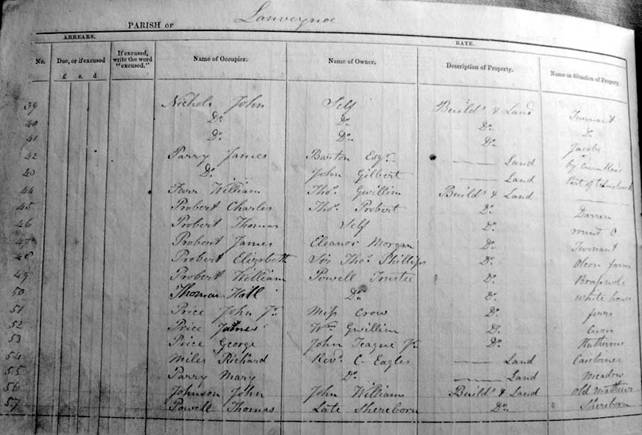 PARISH OF Lanveynoe
ARREARS. RATE.
No. Due, or if excused If excused, write the word "excused." Name of Occupier. Name of Owner. Description of Property. Name or Situation of Property.
£ s. d
39 Nichols John Self Build.s & Land Turnant
40 Do. Do. Do.
41 Do. Do. Do. Jacobs
42 Parry James Barton Esqr. —— Land
43 Do. John Gilbert —— Land Part of
44 William Thos. Gwillim Build.s & Land
45 Probert Charles Thos. Probert Do. Darren
46 Probert Thomas Self Do.
47 Probert James Eleanor Morgan Do. Turnant
48 Probert Elizabeth Sir Thos. Phillips Do. Olcon farm
49 Probert William Powell Trustee Do.
50 Thomas Hall Do. Do. White house
51 Price John Jr. Miss Crow Do. farm
52 Price James Wm. Gwillim Do.
53 Price George John Teague Jr. Do.
54 Miles Richard Revd. C. Eagles —— Land
55 Parry Mary Do. —— Land Meadow
56 Johnson John John William Build.s & Land Old
57 Powell Thomas Late Shereborn Do. Shereborn